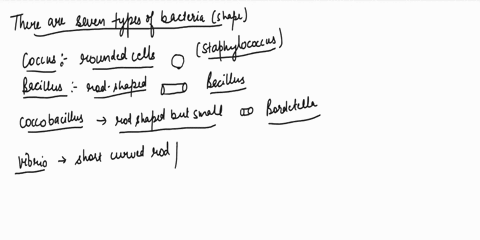 There are seven types of bacteria (shape)
Coccus :- rounded cells (Staphylococcus)
Bacillus :- rod-shaped Bacillus
Coccobacillus → rod shaped but small Bordetella
Vibrio → short curved rod